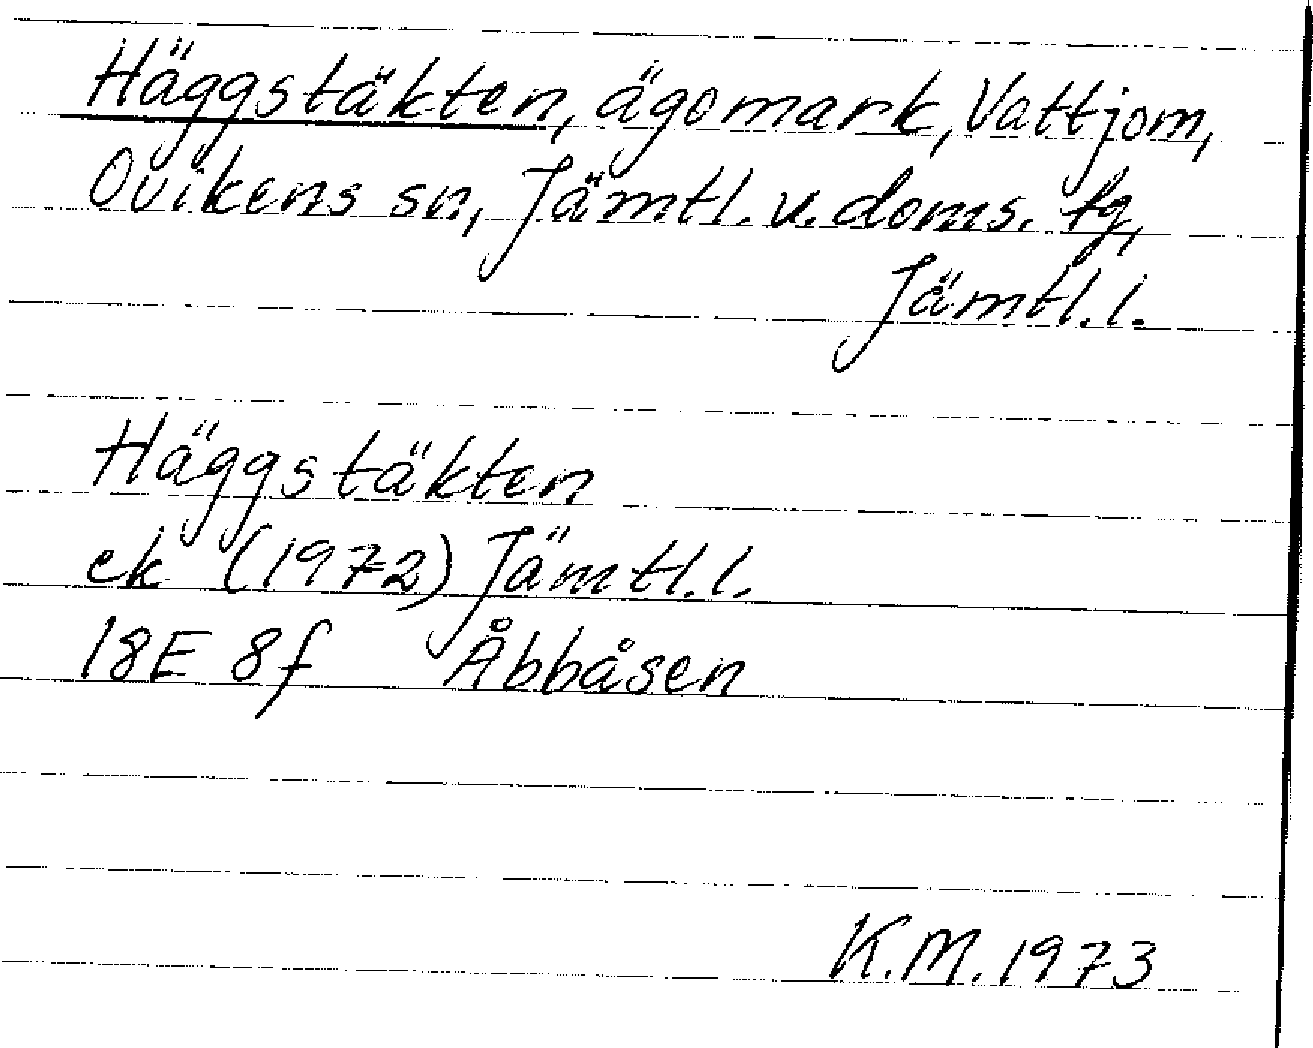 Häggstäkten, ägomark, Vattjom,
Ovikens sn, Jämtl. v. doms. tg,
Jämtl. l.
Häggstäkten
ek (1972) Jämtl. l.
18E 8f Åbbåsen
K.M. 1973